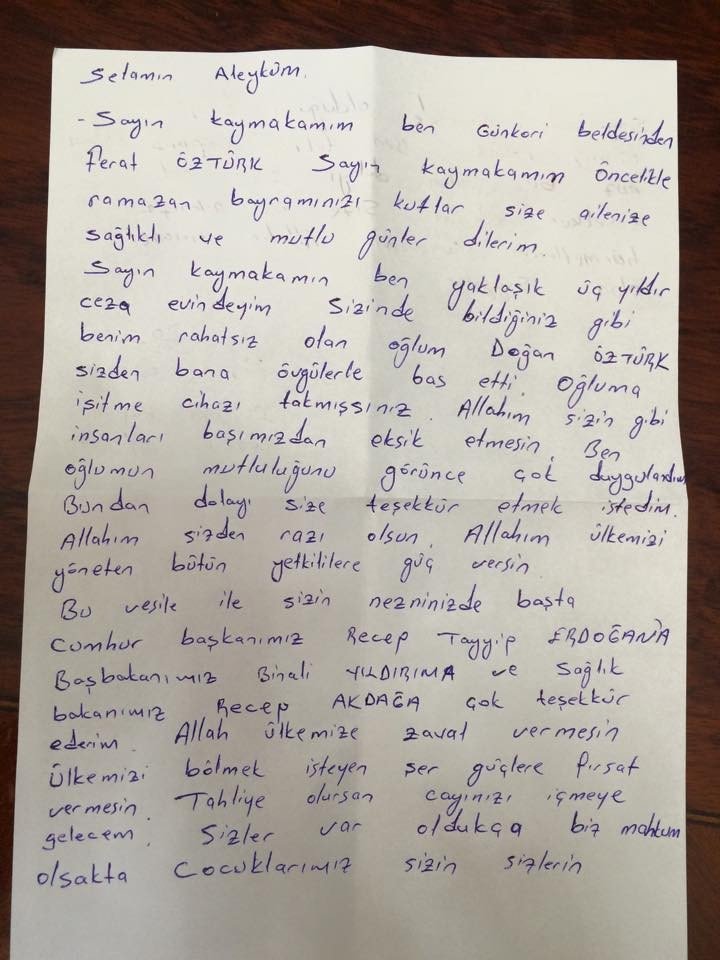 Selamın Aleyküm.
- Sayın kaymakamım ben Günkori beldesinden
Ferat ÖZTÜRK Sayın kaymakamım Öncelikle
ramazan bayramınızı kutlar size ailenize
sağlıklı ve mutlu günler dilerim.
Sayın kaymakamın ben yaklaşık üç yıldır
ceza evindeyim Sizinde bildiğiniz gibi
benim rahatsız olan oğlum Doğan ÖZTÜRK
sizden bana övgülerle bas etti. Oğluma
işitme cihazı takmışsınız. Allahım sizin gibi
insanları başımızdan eksik etmesin. Ben
oğlumun mutluluğunu görünce çok duygulandım
Bundan dolayı size teşekkür etmek istedim.
Allahım sizden razı olsun. Allahım ülkemizi
yöneten bütün yetkililere güç versin
Bu vesile ile sizin nezninizde başta
Cumhur başkanımız Recep Tayyip ERDOĞAN'A
Başbakanımız Binali YILDIRIMA ve Sağlık
bakanımız Recep AKDAĞA çok teşekkür
ederim. Allah ülkemize zaval vermesin
Ülkemizi bölmek isteyen şer güçlere fırsat
vermesin. Tahliye olursam cayınızı içmeye
gelecem. Sizler var oldukça biz mahkum
olsakta Cocuklarımız sizin sizlerin